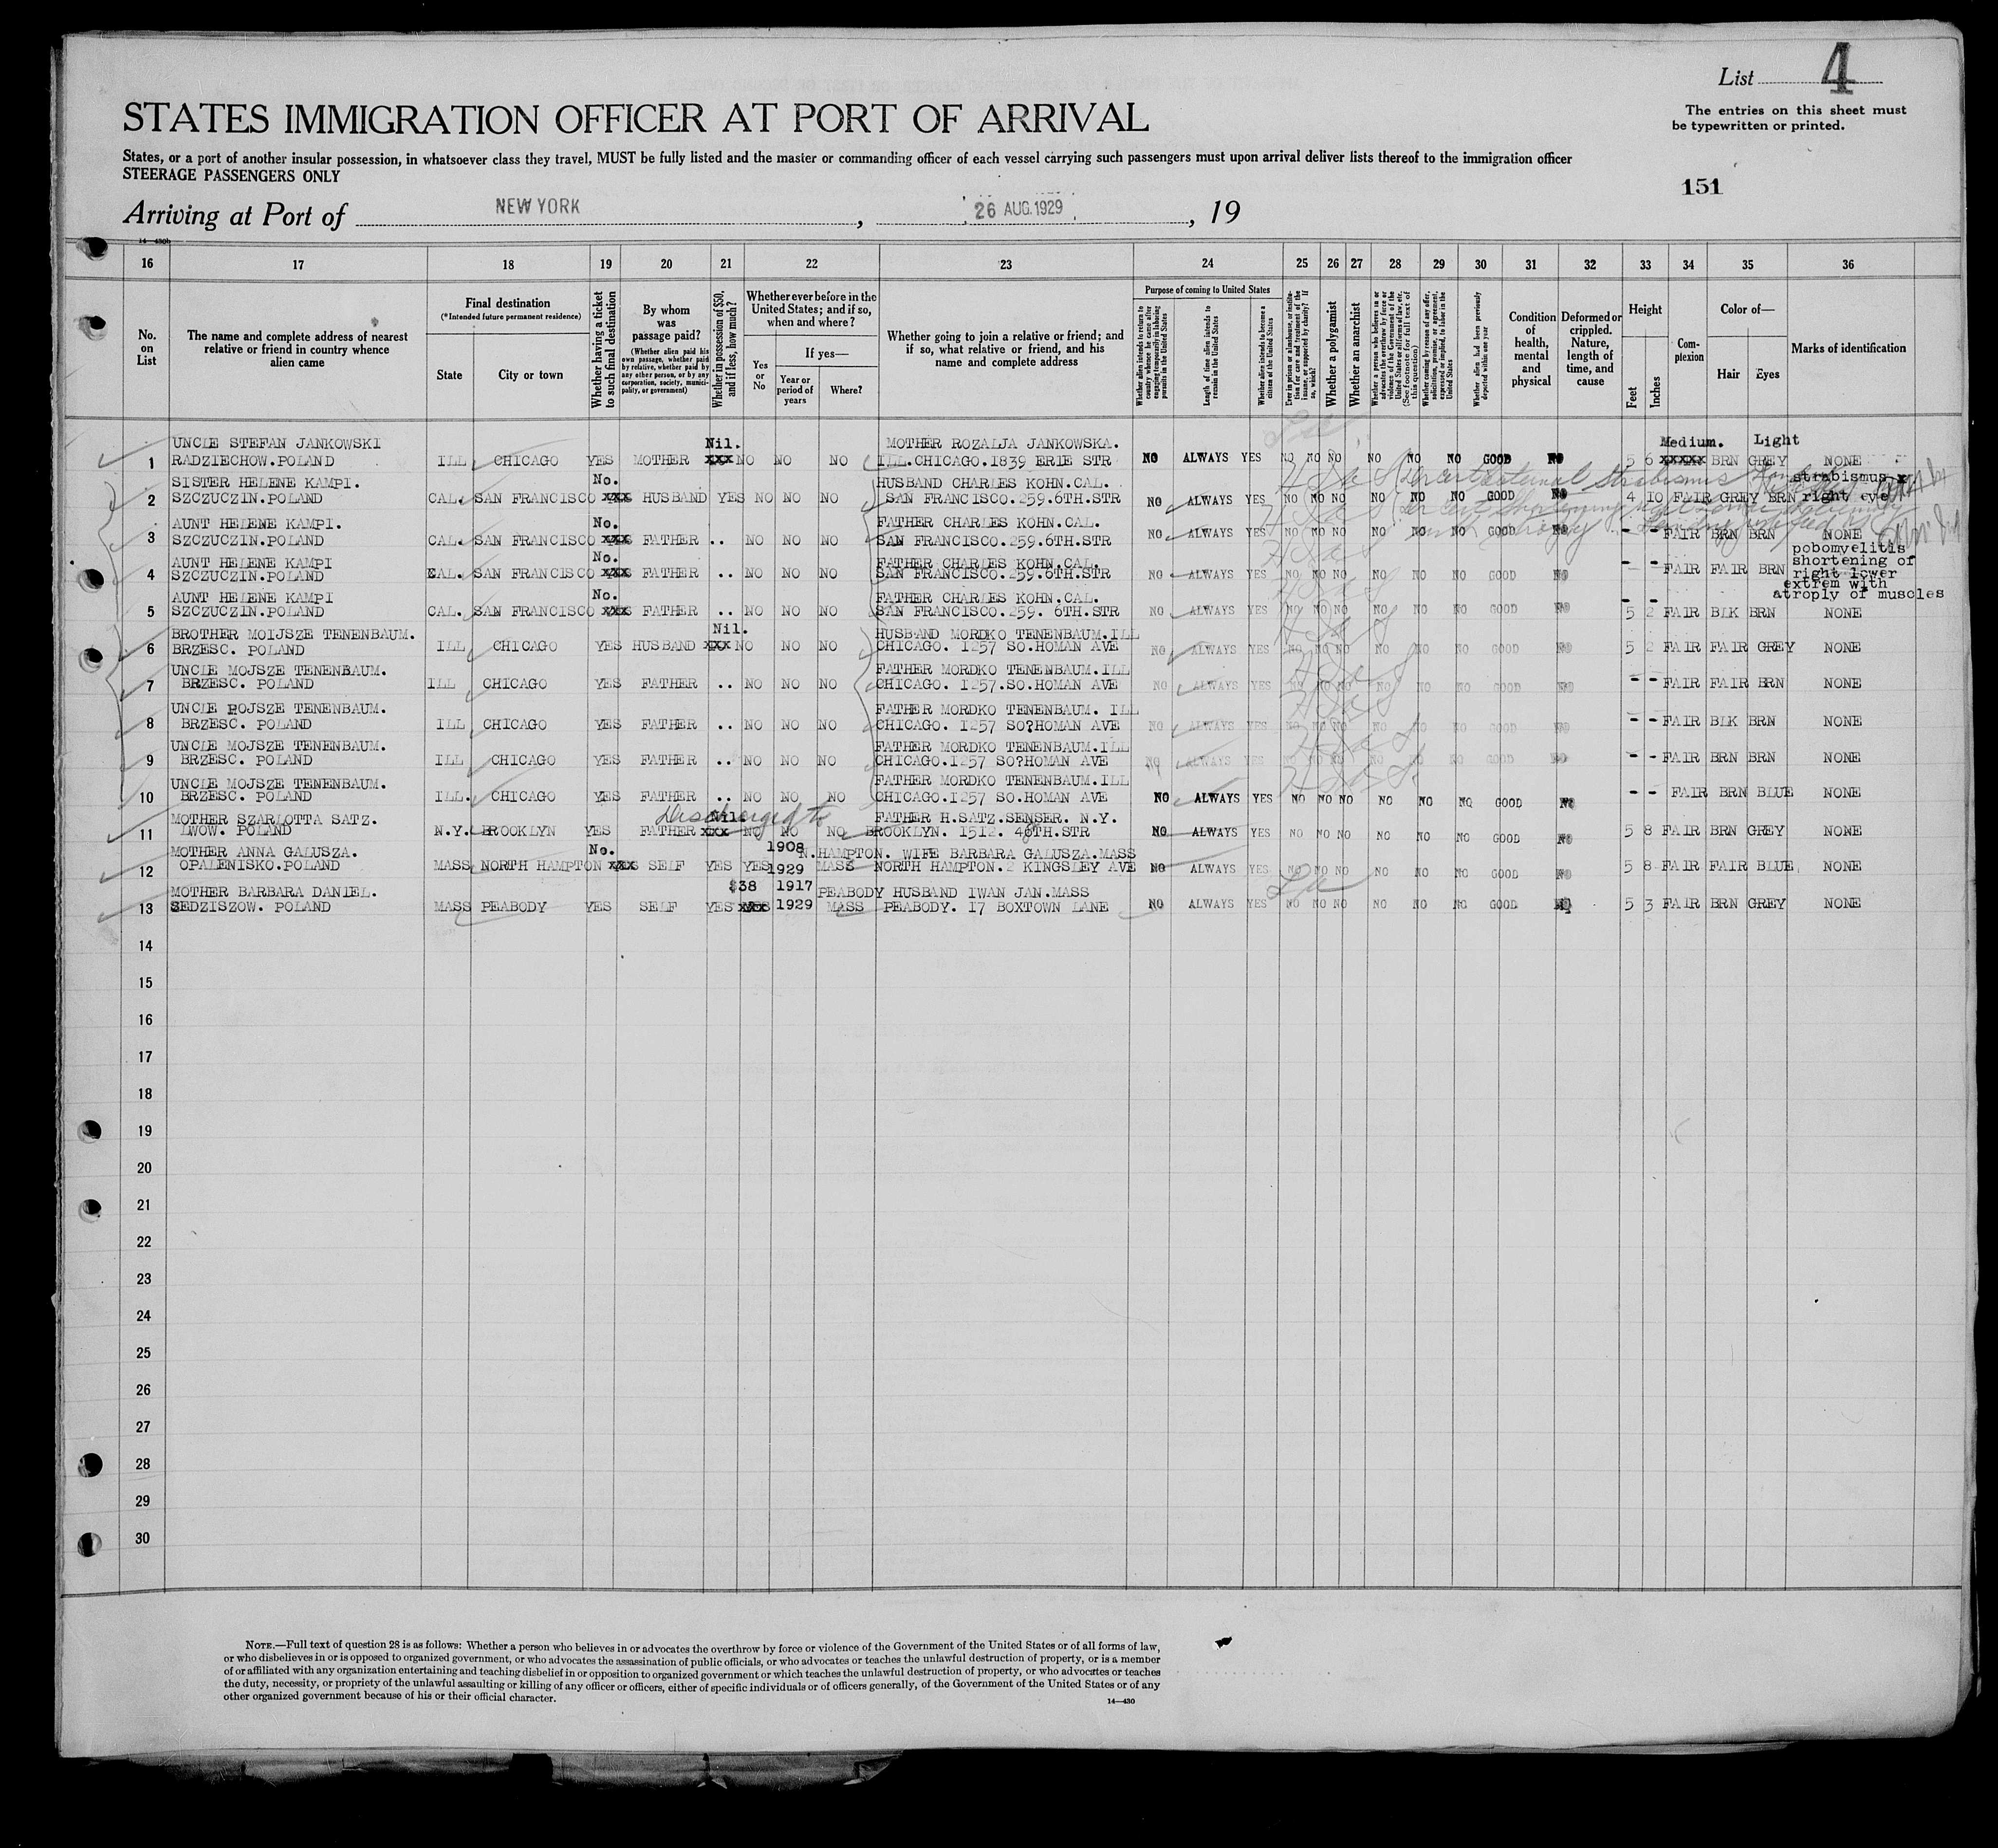 List 4
The entries on this sheet must
be typewritten or printed.
STATES IMMIGRATION OFFICER AT PORT OF ARRIVAL
States, or a port of another insular possession, in whatsoever class they travel, MUST be fully listed and the master or commanding officer of each vessel carrying such passengers must upon arrival deliver lists thereof to the immigration officer
STEERAGE PASSENGERS ONLY
151
Arriving at Port of NEW YORK, 26 AUG.1929, 19
14—430b
16 17 18 19 20 21 22 23 24 25 26 27 28 29 30 31 32 33 34 35 36
No. on List
The name and complete address of nearest relative or friend in country whence alien came
Final destination
(*Intended future permanent residence)
State
City or town
Whether having a ticket to such final destination
By whom was passage paid?
(Whether alien paid his own passage, whether paid by relative, whether paid by any other person, or by any corporation, society, municipality, or government)
Whether in possession of $50, and if less, how much?
Whether ever before in the United States; and if so, when and where?
Yes or No
If yes—
Year or period of years
Where?
Whether going to join a relative or friend; and if so, what relative or friend, and his name and complete address
Purpose of coming to United States
Whether alien intends to return to country whence he came after engaging temporarily in laboring pursuits in the United States
Length of time alien intends to remain in the United States
Whether alien intends to become a citizen of the United States
Ever in prison or almshouse, or institution for care and treatment of the insane, or supported by charity? If so, which?
Whether a polygamist
Whether an anarchist
Whether a person who believes in or advocates the overthrow by force or violence of the Government of the United States or all forms of law, etc. (See footnote for full text of this question)
Whether coming by reason of any offer, solicitation, promise, or agreement, expressed or implied, to labor in the United States
Whether alien had been previously deported within one year
Condition of health, mental and physical
Deformed or crippled. Nature, length of time, and cause
Height
Feet
Inches
Complexion
Color of—
Hair
Eyes
Marks of identification
UNCLE STEFAN JANKOWSKI Nil. MOTHER ROZALJA JANKOWSKA. Medium. Light
1 RADZIECHOW.POLAND ILL CHICAGO YES MOTHER xxx NO NO NO ILL.CHICAGO.1839 ERIE STR NO ALWAYS YES NO NO NO NO NO NO GOOD NO 5 6 xxxxx BRN GREY NONE
SISTER HELENE KAMPI. No. HUSBAND CHARLES KOHN.CAL. strabismus
2 SZCZUCZIN.POLAND CAL. SAN FRANCISCO xxx HUSBAND YES NO NO NO SAN FRANCISCO.259.6TH.STR NO ALWAYS YES NO NO NO NO NO NO GOOD NO 4 10 FAIR GREY BRN right eye
AUNT HELENE KAMPI. No. FATHER CHARLES KOHN.CAL.
3 SZCZUCZIN.POLAND CAL. SAN FRANCISCO xxx FATHER .. NO NO NO SAN FRANCISCO.259.6TH.STR NO ALWAYS YES NO NO NO NO NO NO GOOD NO - - FAIR BRN BRN NONE
AUNT HELENE KAMPI No. FATHER CHARLES KOHN.CAL. pobomyelitis
shortening of
4 SZCZUCZIN.POLAND CAL. SAN FRANCISCO xxx FATHER .. NO NO NO SAN FRANCISCO.259.6TH.STR NO ALWAYS YES NO NO NO NO NO NO GOOD NO - - FAIR FAIR BRN right lower
extrem with
AUNT HELENE KAMPI No. FATHER CHARLES KOHN.CAL. - - atroply of muscles
5 SZCZUCZIN.POLAND CAL. SAN FRANCISCO xxx FATHER .. NO NO NO SAN FRANCISCO.259. 6TH.STR NO ALWAYS YES NO NO NO NO NO NO GOOD NO 5 2 FAIR BLK BRN NONE
BROTHER MOIJSZE TENENBAUM. Nil. HUSBAND MORDKO TENENBAUM.ILL
6 BRZESC. POLAND ILL CHICAGO YES HUSBAND xxx NO NO NO CHICAGO. 1257 SO.HOMAN AVE NO ALWAYS YES NO NO NO NO NO NO GOOD NO 5 2 FAIR FAIR GREY NONE
UNCLE MOJSZE TENENBAUM. FATHER MORDKO TENENBAUM.ILL
7 BRZESC. POLAND ILL CHICAGO YES FATHER .. NO NO NO CHICAGO. 1257.SO.HOMAN AVE NO ALWAYS YES NO NO NO NO NO NO GOOD NO - - FAIR FAIR BRN NONE
UNCLE POJSZE TENENBAUM. FATHER MORDKO TENENBAUM. ILL
8 BRZESC. POLAND ILL CHICAGO YES FATHER .. NO NO NO CHICAGO. 1257 SO?HOMAN AVE NO ALWAYS YES NO NO NO NO NO NO GOOD NO - - FAIR BLK BRN NONE
UNCLE MOJSZE TENENBAUM. FATHER MORDKO TENENBAUM.ILL
9 BRZESC. POLAND ILL CHICAGO YES FATHER .. NO NO NO CHICAGO.1257 SO?HOMAN AVE NO ALWAYS YES NO NO NO NO NO NO GOOD NO - - FAIR BRN BRN NONE
UNCLE MOJSZE TENENBAUM. FATHER MORDKO TENENBAUM.ILL
10 BRZESC. POLAND ILL. CHICAGO YES FATHER .. NO NO NO CHICAGO.1257 SO.HOMAN AVE NO ALWAYS YES NO NO NO NO NO NO GOOD NO - - FAIR BRN BLUE NONE
MOTHER SZARLOTTA SATZ. Discharged to Nil. FATHER H.SATZ.SENSER. N.Y.
11 LWOW. POLAND N.Y. BROOKLYN YES FATHER xxx NO NO NO BROOKLYN. 1512. 48TH.STR NO ALWAYS YES NO NO NO NO NO NO GOOD NO 5 8 FAIR BRN GREY NONE
MOTHER ANNA GALUSZA. No. 1908 N.HAMPTON. WIFE BARBARA GALUSZA.MASS
12 OPALENISKO.POLAND MASS NORTH HAMPTON xxx SELF YES YES 1929 MASS NORTH HAMPTON.2 KINGSLEY AVE NO ALWAYS YES NO NO NO NO NO NO GOOD NO 5 8 FAIR FAIR BLUE NONE
MOTHER BARBARA DANIEL. $38 1917 PEABODY HUSBAND IWAN JAN.MASS
13 SEDZISZOW. POLAND MASS PEABODY YES SELF YES 1929 MASS PEABODY. 17 BOXTOWN LANE NO ALWAYS YES NO NO NO NO NO NO GOOD NO 5 3 FAIR BRN GREY NONE
14
15
16
17
18
19
20
21
22
23
24
25
26
27
28
29
30
NOTE.—Full text of question 28 is as follows: Whether a person who believes in or advocates the overthrow by force or violence of the Government of the United States or of all forms of law,
or who disbelieves in or is opposed to organized government, or who advocates the assassination of public officials, or who advocates or teaches the unlawful destruction of property, or is a member
of or affiliated with any organization entertaining and teaching disbelief in or opposition to organized government or which teaches the unlawful destruction of property, or who advocates or teaches
the duty, necessity, or propriety of the unlawful assaulting or killing of any officer or officers, either of specific individuals or of officers generally, of the Government of the United States or of any
other organized government because of his or their official character.
14—430